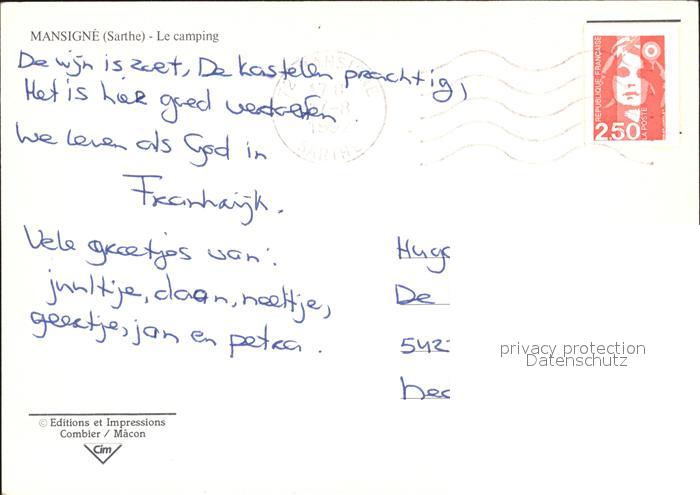 MANSIGNÉ (Sarthe) - Le camping
De wijn is zoet, De kastelen prachtig,
Het is hier goed vertoefen.
We leven als God in
Frankrijk.
Vele groetjes van:
juultje, daan, neeltje,
geertje, jan en petra.
Hugo
De
542
privacy protection
Datenschutz
© Editions et Impressions
Combier / Mâcon
Cim
REPUBLIQUE FRANÇAISE
2,50
LA POSTE
MANSIGNE
SARTHE